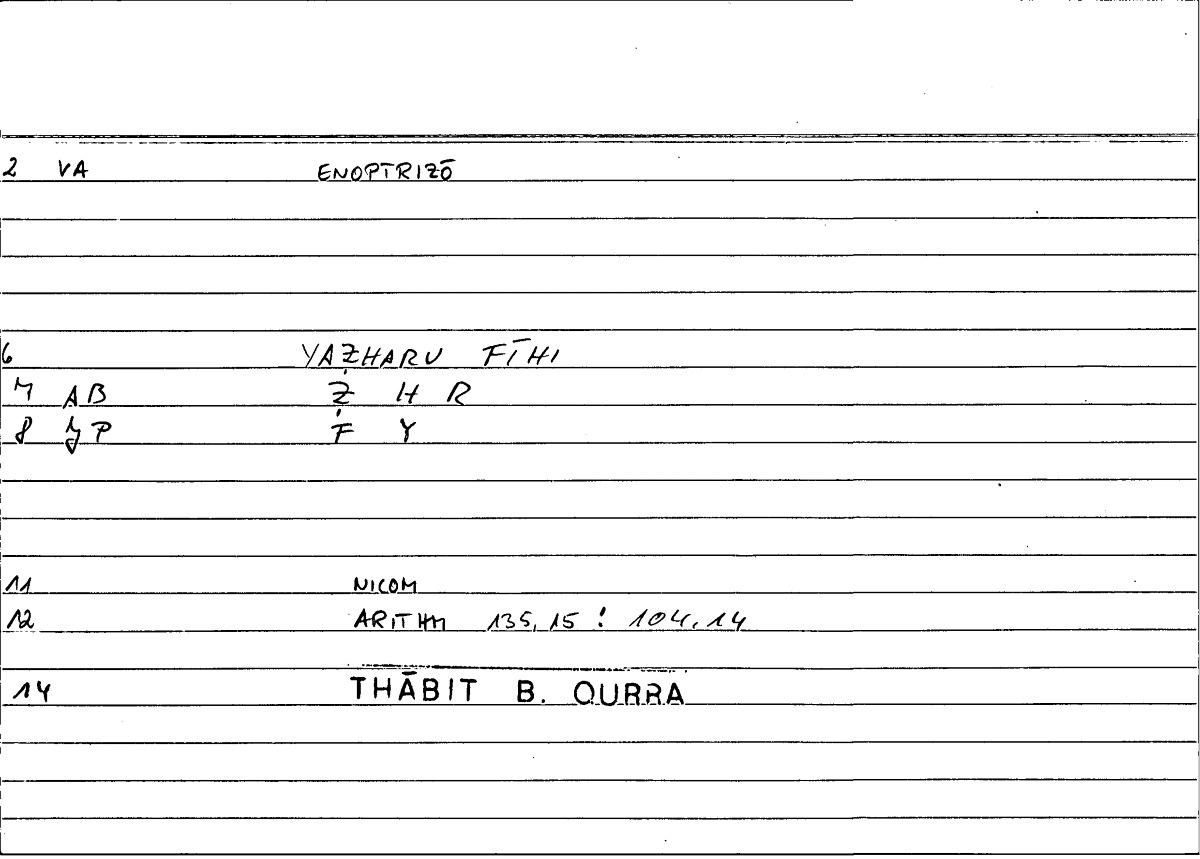 2 VA ENOPTRIZŌ
6 YAẒHARU FĪHI
7 AB Ẓ H R
8 JP Ḟ Y
11 NICOM
12 ARITHM 135,15 : 104,14
14 THĀBIT B. QURRA